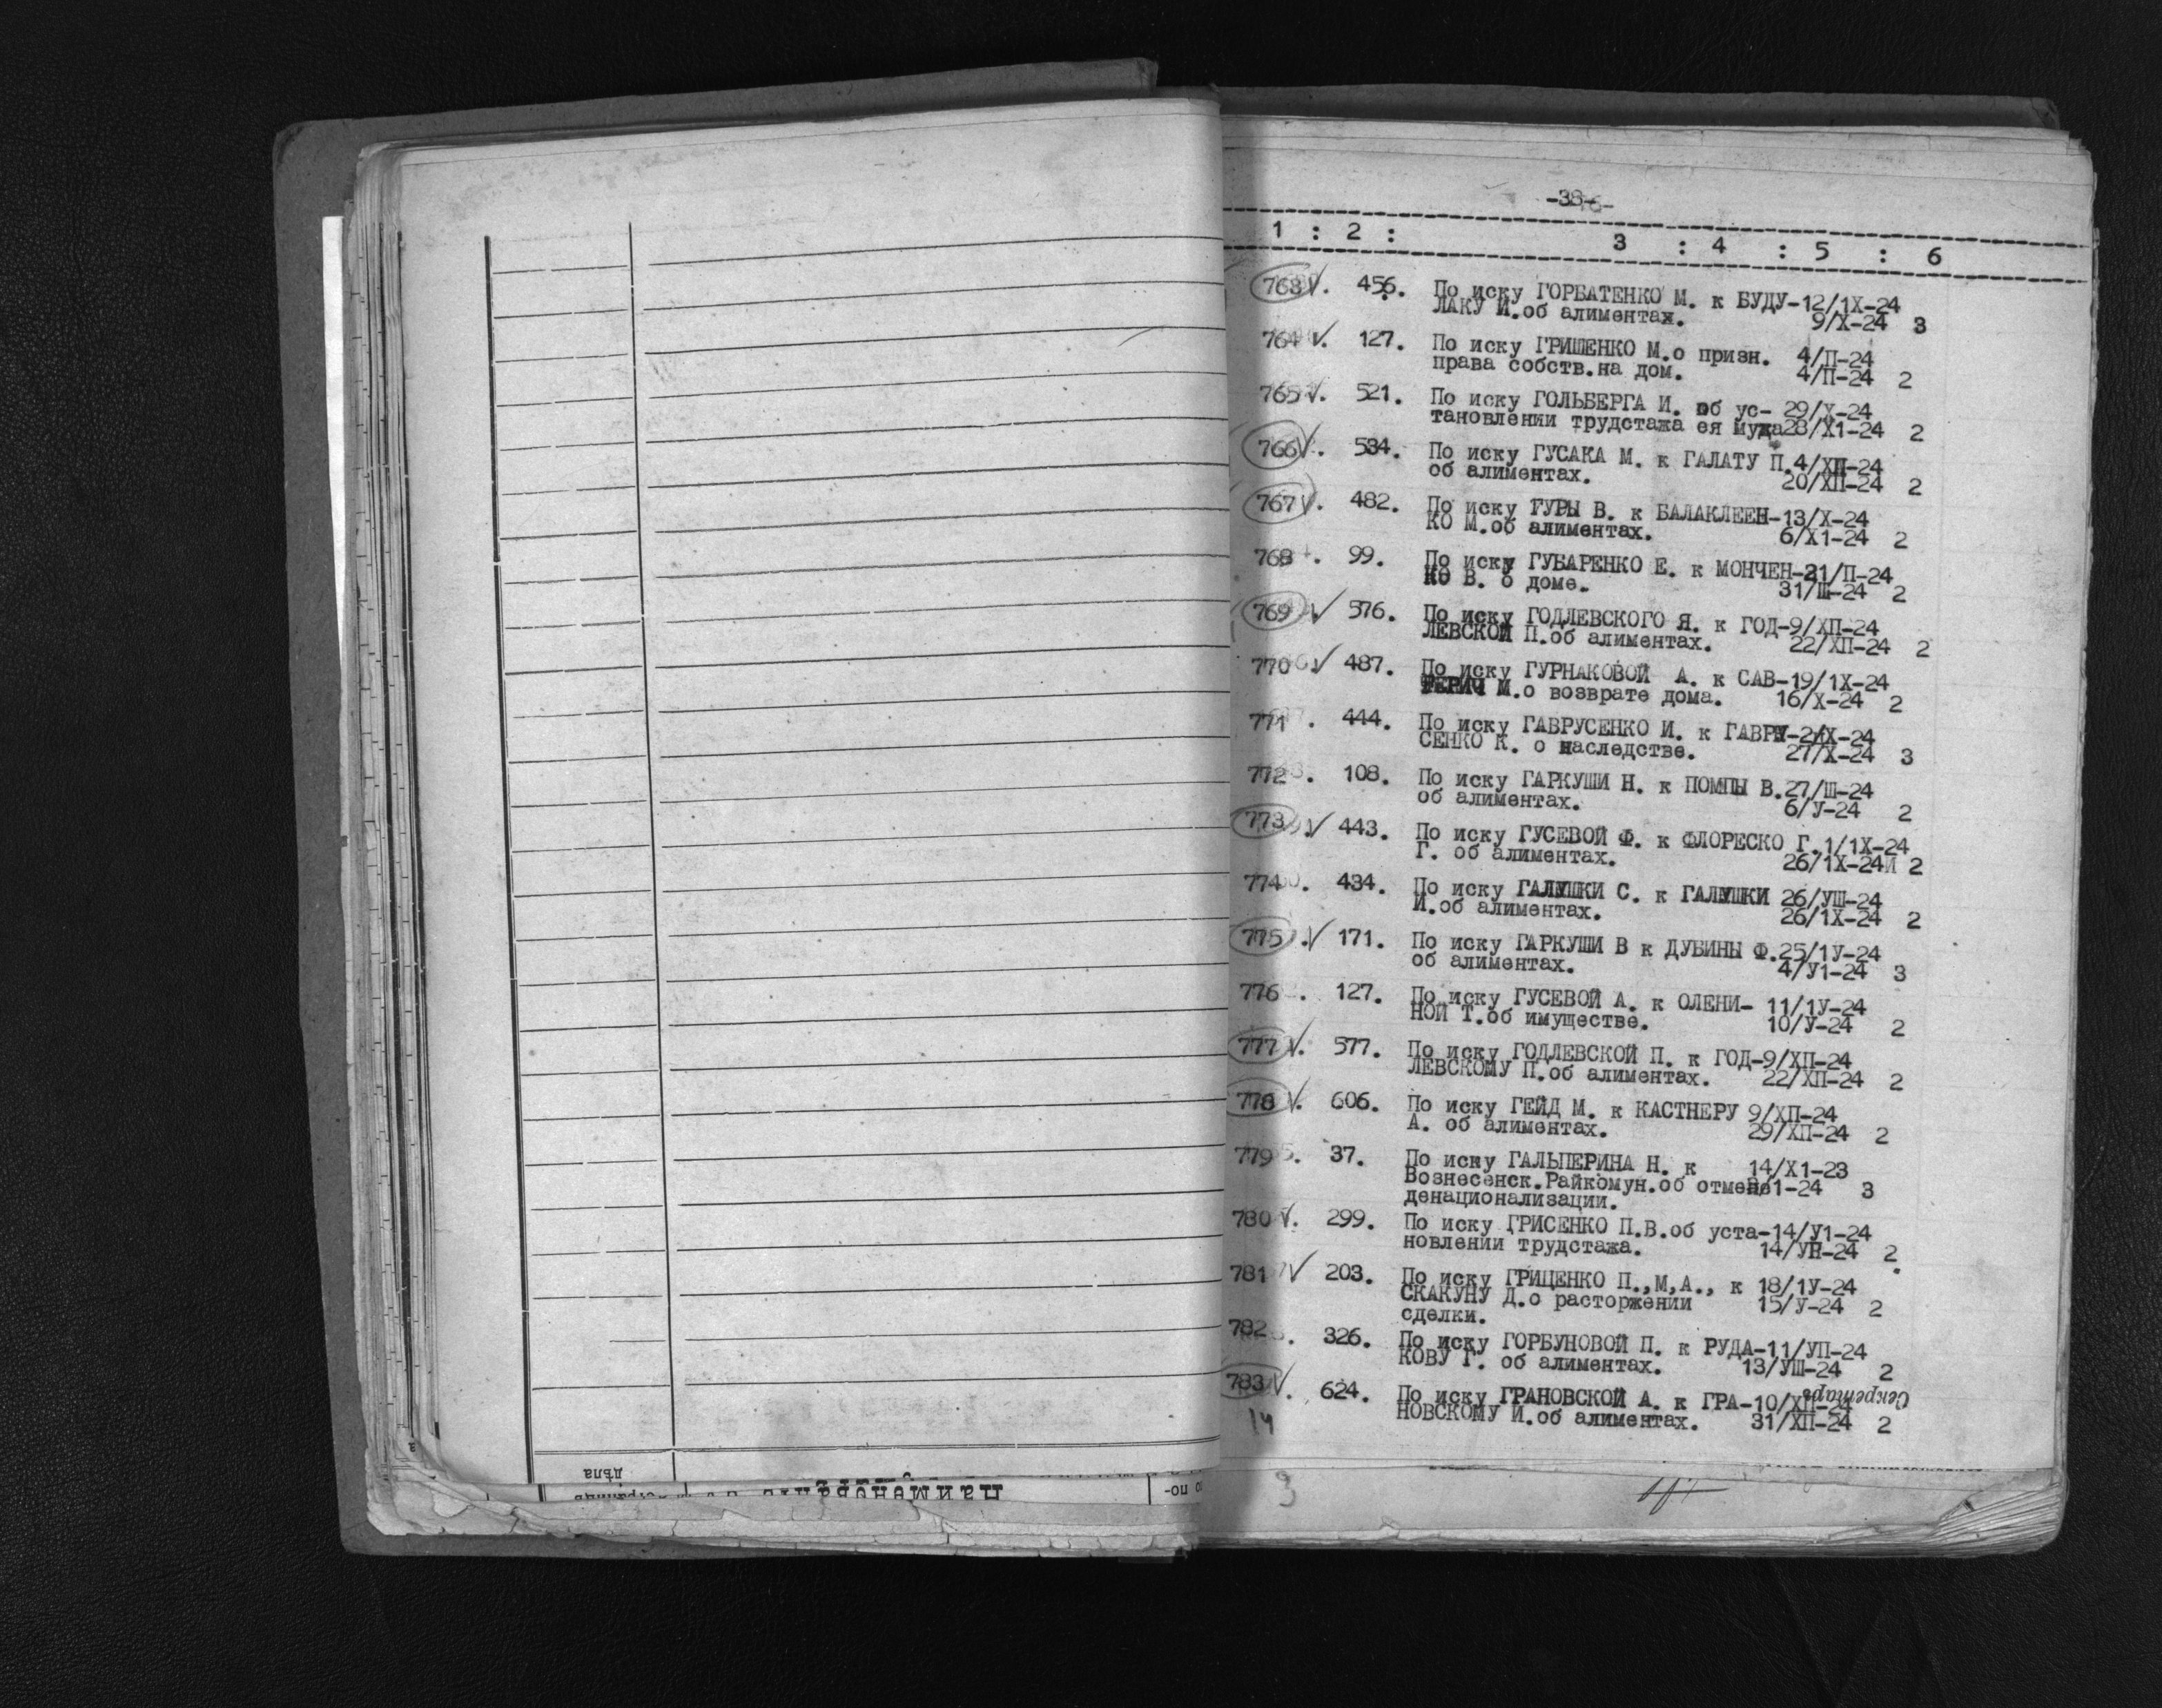 -38-
1 : 2 : 3 : 4 : 5 : 6
763 V. 456. По иску ГОРБАТЕНКО М. к БУДУ-12/1Х-24
ЛАКУ И.об алиментах. 9/Х-24 3
764 V. 127. По иску ГРИШЕНКО М.о призн. 4/П-24
права собств.на дом. 4/П-24 2
765 V. 521. По иску ГОЛЬБЕРГА И. об ус- 29/Х-24
тановлении трудстажа ея мужа28/Х1-24 2
766 V. 534. По иску ГУСАКА М. к ГАЛАТУ П.4/ХП-24
об алиментах. 20/ХП-24 2
767 V. 482. По иску ГУРЫ В. к БАЛАКЛЕЕН-13/Х-24
КО М.об алиментах. 6/Х1-24 2
768 . 99. По иску ГУБАРЕНКО Е. к МОНЧЕН-21/П-24
КО В. о доме. 31/Ш-24 2
769 V 576. По иску ГОДЛЕВСКОГО Я. к ГОД-9/ХП-24
ЛЕВСКОЙ П.об алиментах. 22/ХП-24 2
770 .V 487. По иску ГУРНАКОВОЙ А. к САВ-19/1Х-24
ТЕРИЧ М.о возврате дома. 16/Х-24 2
771 . 444. По иску ГАВРУСЕНКО И. к ГАВРУ-2/1Х-24
СЕНКО К. о наследстве. 27/Х-24 3
772 . 108. По иску ГАРКУШИ Н. к ПОМПЫ В.27/Ш-24
об алиментах. 6/У-24 2
773 .V 443. По иску ГУСЕВОЙ Ф. к ФЛОРЕСКО Г.1/1Х-24
Г. об алиментах. 26/1Х-24И 2
774 . 434. По иску ГАЛУШКИ С. к ГАЛУШКИ 26/УШ-24
И.об алиментах. 26/1Х-24 2
775 .V 171. По иску ГАРКУШИ В к ДУБИНЫ Ф.25/1У-24
об алиментах. 4/У1-24 3
776 . 127. По иску ГУСЕВОЙ А. к ОЛЕНИ- 11/1У-24
НОЙ Т.об имуществе. 10/У-24 2
777 V. 577. По иску ГОДЛЕВСКОЙ П. к ГОД-9/ХП-24
ЛЕВСКОМУ П.об алиментах. 22/ХП-24 2
778 V. 606. По иску ГЕЙД М. к КАСТНЕРУ 9/ХП-24
А. об алиментах. 29/ХП-24 2
779 . 37. По иску ГАЛЬПЕРИНА Н. к 14/Х1-23
Вознесенск.Райкомун.об отмене 1-24 3
денационализации.
780 V. 299. По иску ГРИСЕНКО П.В.об уста-14/У1-24
новлении трудстажа. 14/УП-24 2
781 V 203. По иску ГРИЦЕНКО П.,М,А., к 18/1У-24
СКАКУНУ Д.о расторжении 15/У-24 2
сделки.
782 . 326. По иску ГОРБУНОВОЙ П. к РУДА-11/УП-24
КОВУ Г. об алиментах. 13/УШ-24 2
783 V. 624. По иску ГРАНОВСКОЙ А. к ГРА-10/ХП-24
НОВСКОМУ И.об алиментах. 31/ХП-24 2
Секретарь
14
дѣла
по-
3